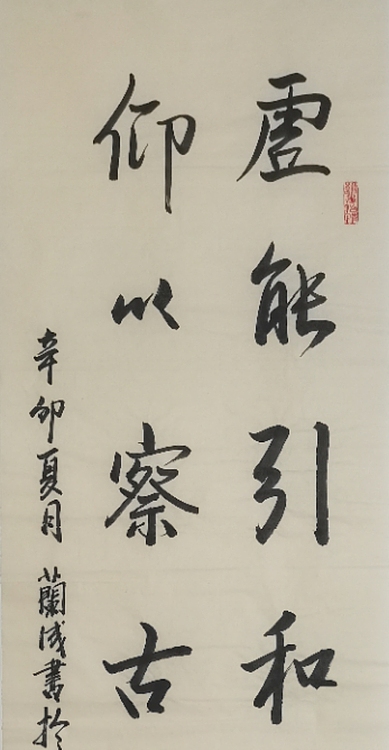 虚能引和
仰以察古
辛卯夏月 蘭成書於